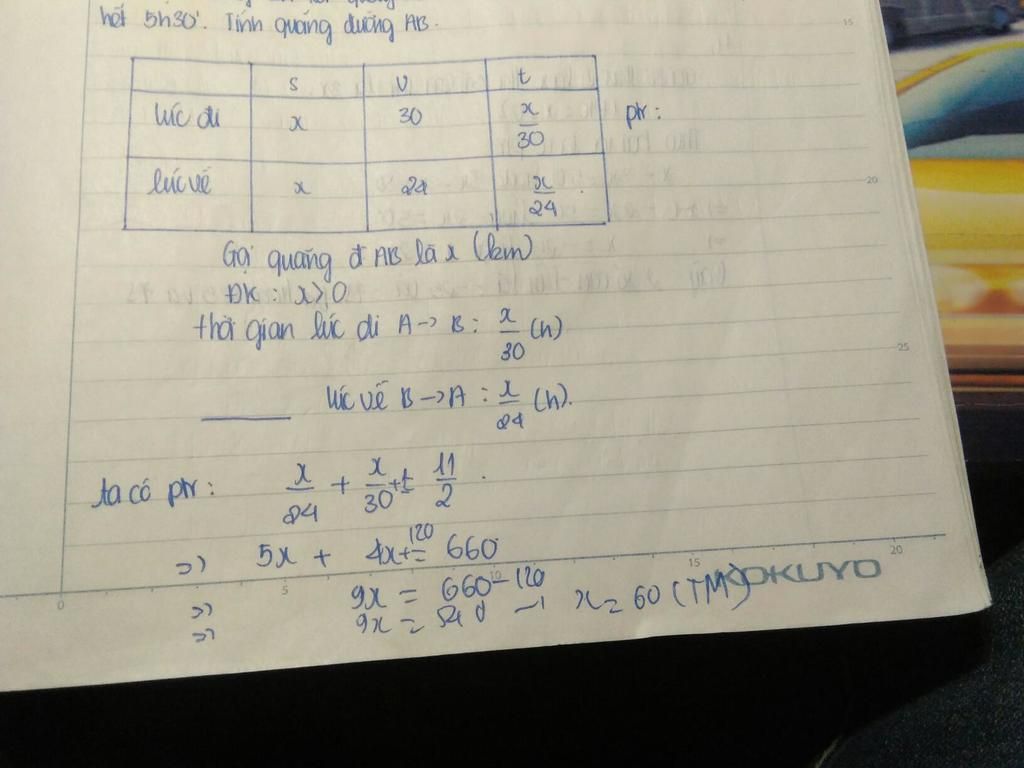 hết 5h30'. Tính quãng đường AB.
s v t
lúc đi x 30 x/30 ptr:
lúc về x 24 x/24
Gọi quãng đ AB là x (km)
ĐK: x>0
thời gian lúc đi A->B: x/30 (h)
lúc về B->A: x/24 (h).
ta có ptr: x/24 + x/30 +1= 11/2.
=> 5x + 4x+120= 660
=> 9x = 660-120
=> 9x = 540 -> x = 60 (TM)
KOKUYO
15
20
25
0 5 10 15 20